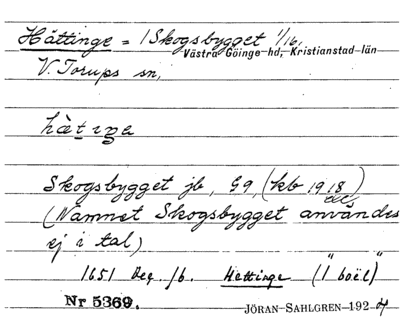 Håttinge = /Skogsbygget 1/16,
Västra Göinge hd, Kristianstad län
V. Torups sn,
Skogsbygget jb, G9, (kb 1918)
(Namnet Skogsbygget användes
ej i tal)
1651 Dec. jb. Hettinge (1 boël)
Nr 5369.
JÖRAN SAHLGREN 1924